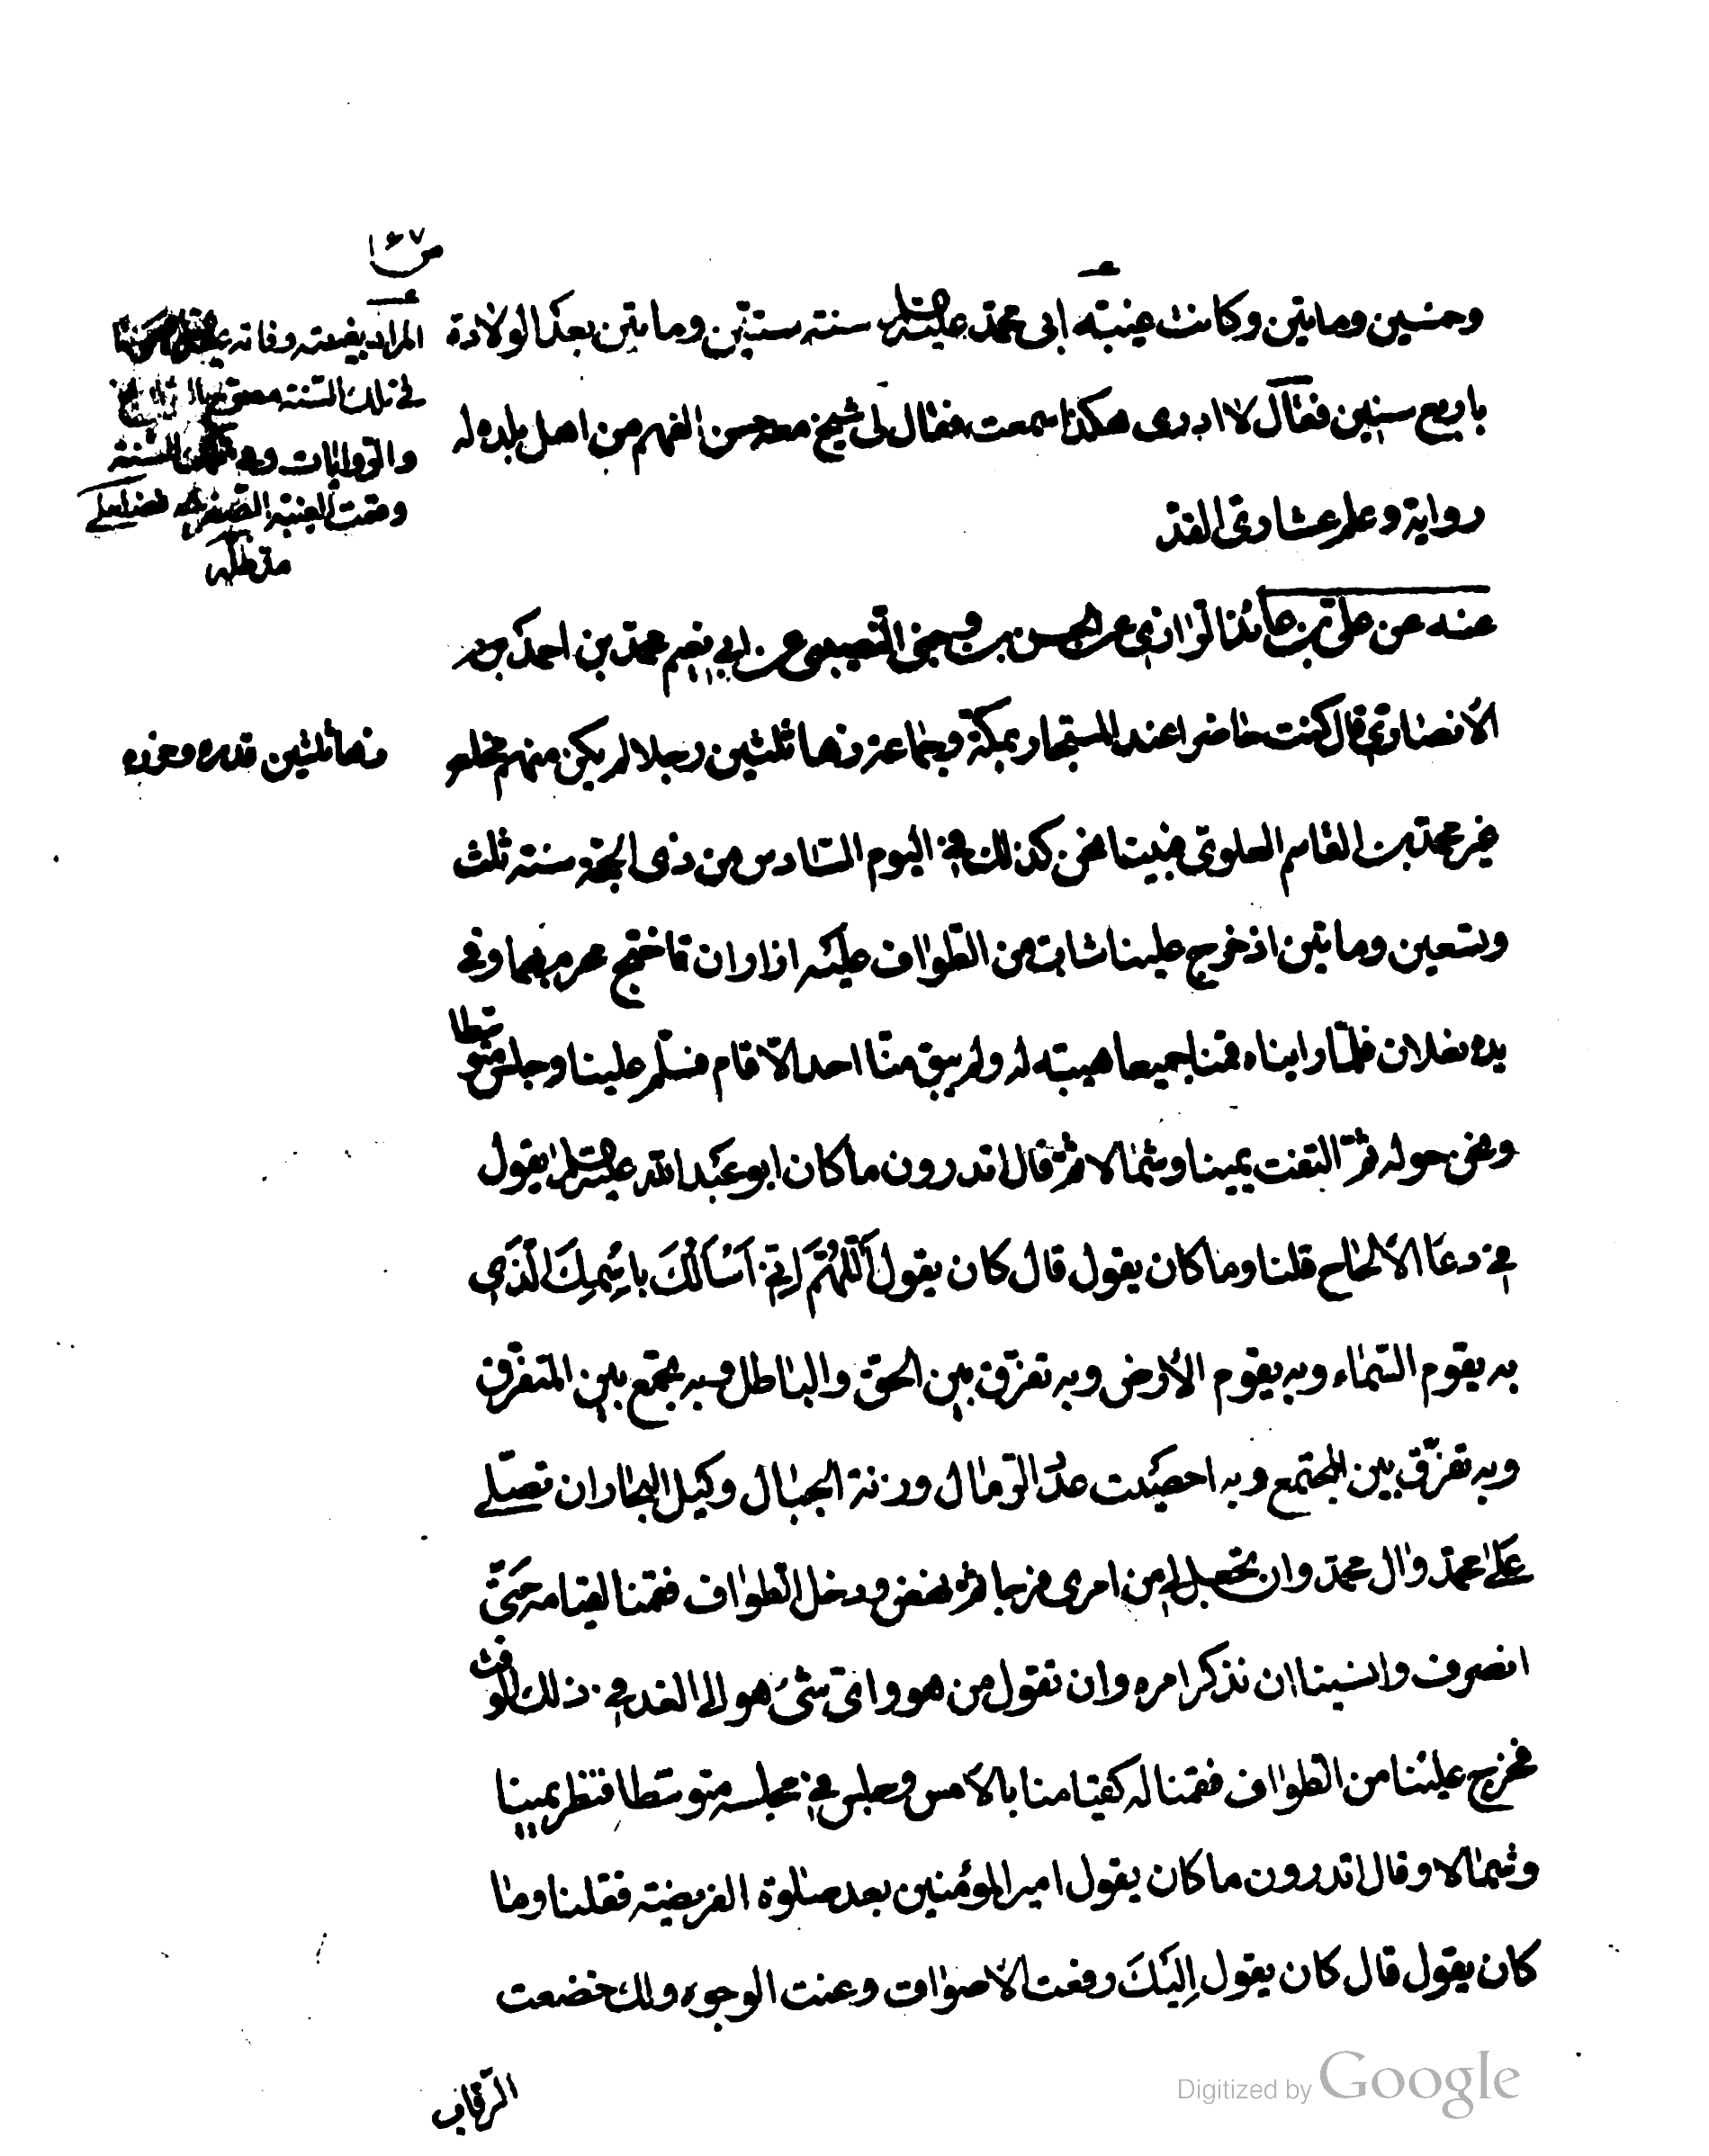 ص ١٦٧
وخمسين ومايتين وكانت غيبته ابى محمد عليه السلم سنته ستين ومايتين بعد الولادة
باربع سنين فقال لا ادرى هكذا سمعت فقال لى شيخ معه حسن الفهم من اهل بلده له
رواية وعلم عشاوتى الفذ
المراد بغيبته وفاته
فى تلك السنة
والروايات
وقعت الغيبة الصغرى
مد ظله
عنه عن على بن عائذ الرازى عن الحسن بن وجنى النصيبى عن ابى نعيم محمد بن احمد
الأنصارى قال كنت حاضرا عند المستجار بمكة وجماعة زها ثلثين رجلا لم يكن منهم مخلص
زها ثلثين قدره وحزره
غير محمد بن القاسم العلوى فبينا نحن كذلك فى اليوم السادس من ذى الحجة سنته ثلث
وتسعين ومايتين اذ خرج علينا شاب من الطواف عليه ازاران فاحتج محرم بهما وفى
يده نعلان فلما رايناه قمنا جميعا هيبته له ولم يبق منا احد الا قام فسلم علينا وجلس متوسطا
ونحن حوله ثم التفت يمينا وشمالا ثم قال اتدرون ما كان ابو عبد الله عليه السلم يقول
فى دعا الالحاح قلنا وما كان يقول قال كان يقول اَللّهُمَّ اِنّى اَسْأَلُكَ بِاسْمِكَ الَّذى
به يقوم السماء وبه يقوم الأرض وبه تفرق بين الحق والباطل وبه تجمع بين المتفرق
وبه تفرق بين المجتمع وبه احصيت عدد الرمال وزنة الجبال وكيل البحار ان تصلى
على محمد وال محمد وان تجعل لى من امرى فرجا ثم نهض ودخل الطواف فقمنا لقيامه حتى
انصرف وانسينا ان نذكر امره وان نقول من هو واى شئ هو الى الغد فى ذلك الوقت
فخرج علينا من الطواف فقمنا له كقيامنا بالأمس وجلس فى مجلسه متوسطا فنظر يمينا
وشمالا وقال اتدرون ما كان يقول امير المؤمنين بعد صلوة الفريضة فقلنا وما
كان يقول قال كان يقول اِلَيْكَ رفعت الأصوات وعنت الوجوه ولك خضعت
الرقاب
Digitized by Google